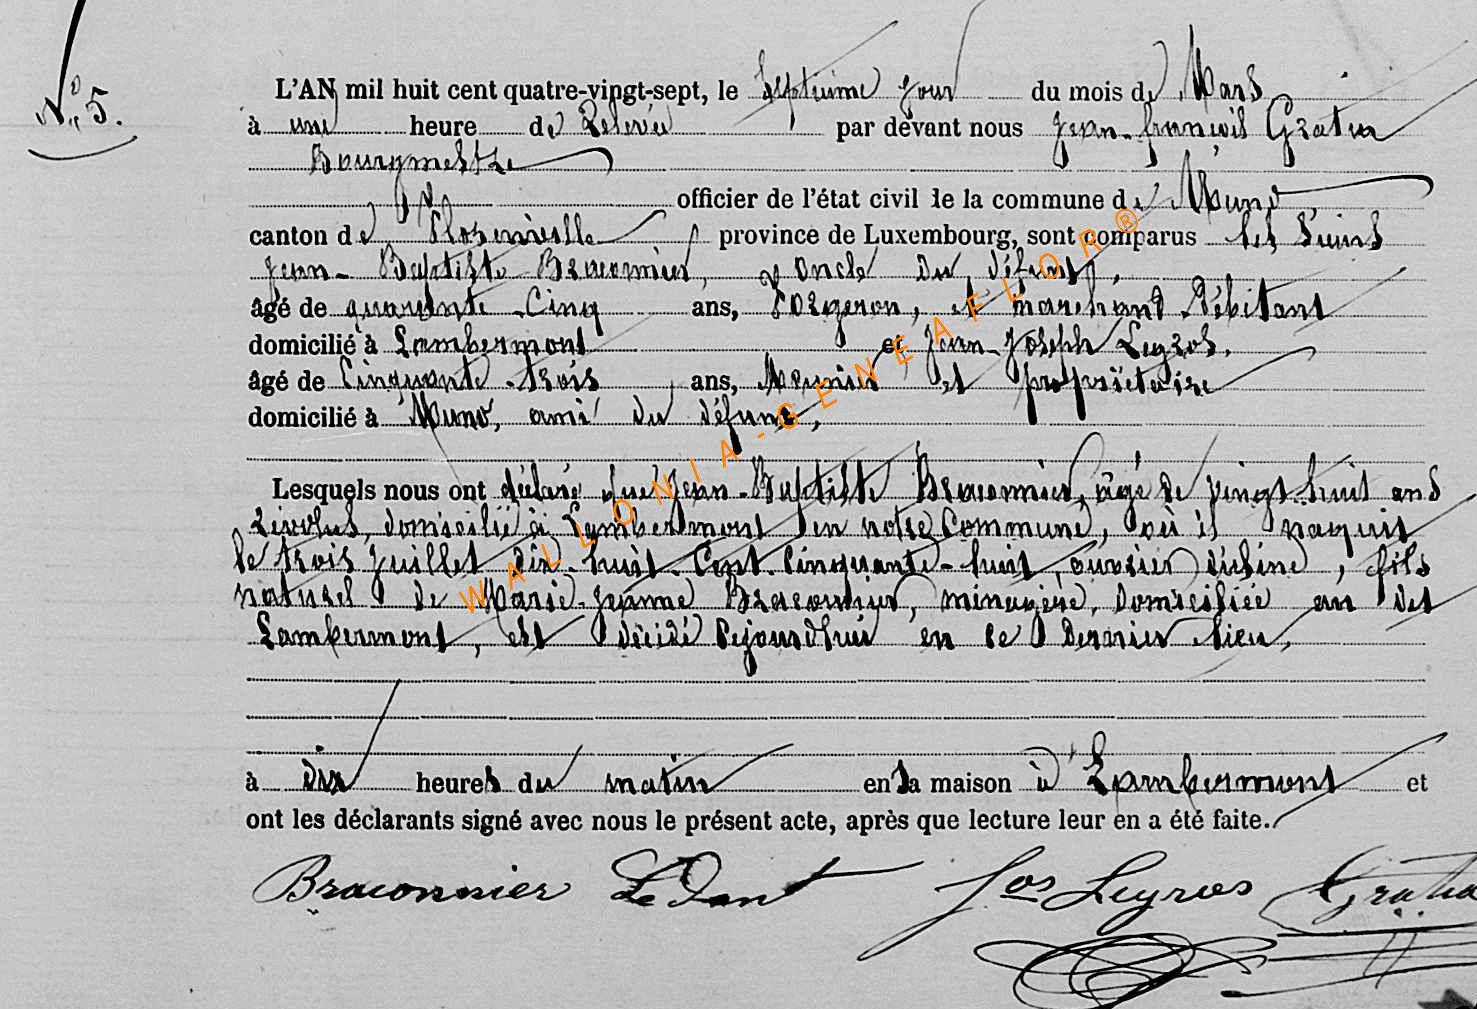 N° 5.
L'AN mil huit cent quatre-vingt-sept, le Septième jour du mois de Mars
à une heure de Relevée par devant nous Jean-françois Gratia
Bourgmestre
officier de l'état civil de la commune de Muno
canton de Florenville province de Luxembourg, sont comparus les Sieurs
Jean-Baptiste Braconnier, oncle du défunt,
âgé de quarante-Cinq ans, Forgeron, et marchand Débitant
domicilié à Lambermont et Jean-Joseph Legros,
âgé de Cinquante-trois ans, Meunier et propriétaire
domicilié à Muno, ami du défunt,
Lesquels nous ont déclaré que Jean-Baptiste Braconnier, âgé de vingt-huit ans
Révolus, domicilié à Lambermont en notre Commune, où il naquit
le trois Juillet dix-huit-Cent-Cinquante-huit, ouvrier d'usine, fils
naturel de Marie-Jeanne Braconnier, ménagère, Domiciliée au dit
Lambermont, est décédé Cejourd'hui en ce Dernier lieu,
à dix heures du matin en sa maison à Lambermont et
ont les déclarants signé avec nous le présent acte, après que lecture leur en a été faite.
Braconnier LeDant Jos Legros Gratia
WALLONIA-GENEAFLOR®